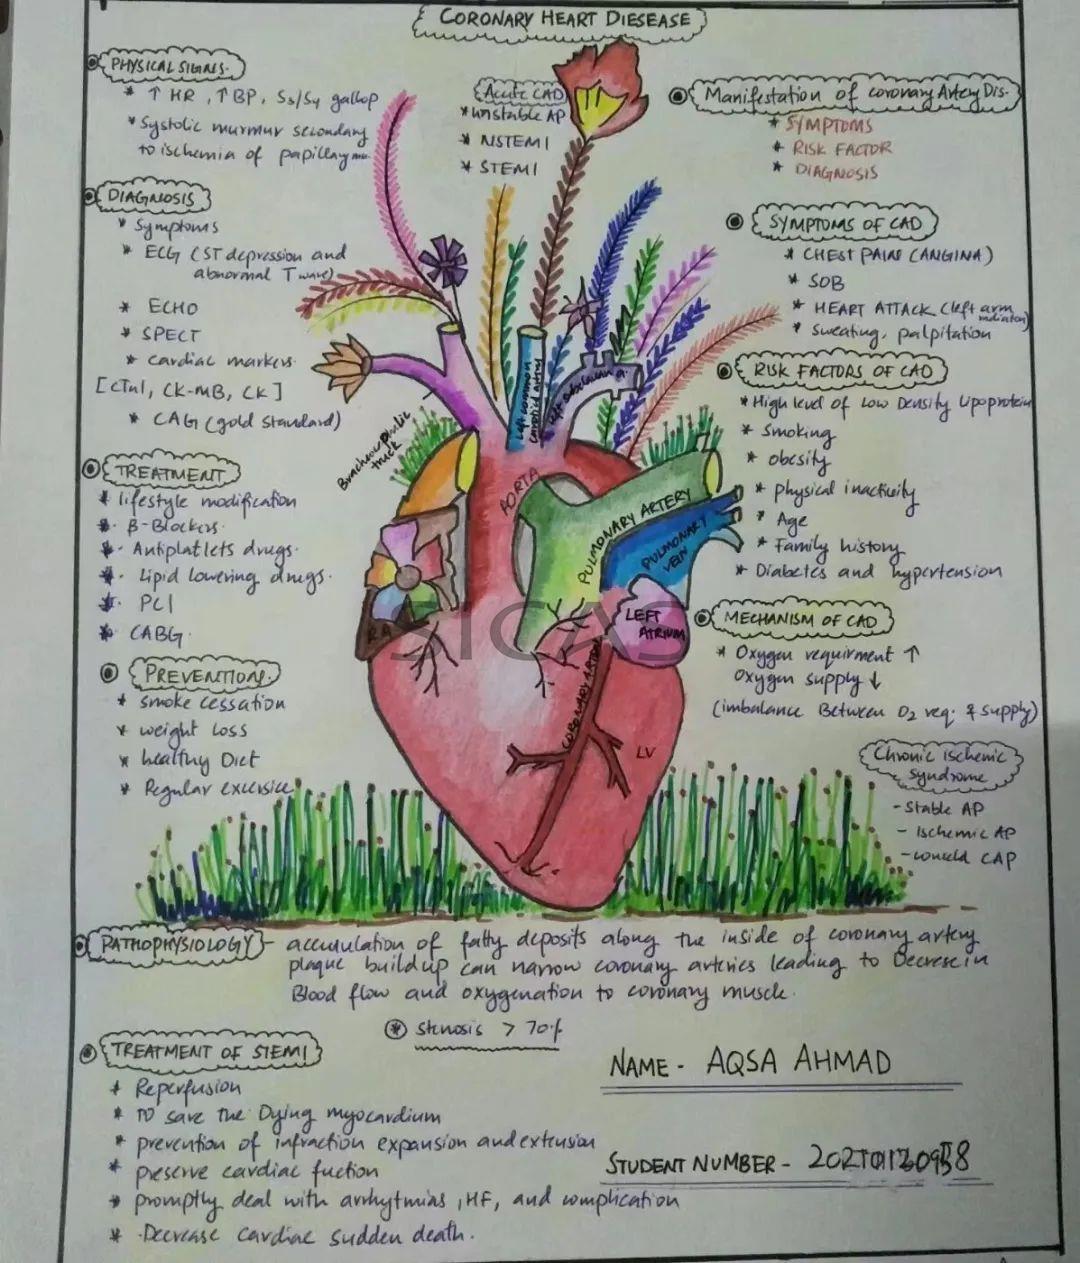 CORONARY HEART DIESEASE
PHYSICAL SIGNS.
* ↑ HR, ↑ BP, S3/S4 gallop
* Systolic murmur secondary
to ischemia of papillay
DIAGNOSIS
* Symptoms
* ECG (ST depression and
abnormal T wave)
* ECHO
* SPECT
* cardiac markers.
[cTnI, CK-MB, CK]
* CAG (gold standard)
TREATMENT
* lifestyle modification
* β-Blockers.
* Antiplatlets drugs.
* Lipid lowering drugs.
* PCI
* CABG.
PREVENTION
* smoke cessation
* weight loss
* healthy Diet
* Regular excersice
Acute CAD
* unstable AP
* NSTEMI
* STEMI
Manifestation of coronary Artery Dis.
* SYMPTOMS
* RISK FACTOR
* DIAGNOSIS
SYMPTOMS OF CAD
* CHEST PAIN (ANGINA)
* SOB
* HEART ATTACK (left arm
* Sweating, palpitation
RISK FACTORS OF CAD
* High level of Low Density lipoprotein
* Smoking
* obesity
* physical inactivity
* Age
* Family history
* Diabetes and hypertension
MECHANISM OF CAD
* Oxygen requirment ↑
Oxygen supply ↓
(imbalance Between O2 req. & supply)
Chronic ischemic
syndrome
- Stable AP
- Ischemic AP
CAP
left common
carotid artery
left subclavian a.
truck
AORTA
PULMONARY ARTERY
PULMONARY
VEIN
LEFT
ATRIUM
RA
CORONARY ARTERY
LV
SICAS
PATHOPHYSIOLOGY - accumulation of fatty deposits along the inside of coronary artery
plaque buildup can narrow coronary arteries leading to Decrese in
Blood flow and oxygenation to coronary muscle.
* stenosis > 70%
TREATMENT OF STEMI
* Reperfusion
* TO save the Dying myocardium
* prevention of infraction expansion and extension
* preserve cardiac fuction
* promptly deal with arrhytmias, HF, and complication
* Decrease cardiac sudden death.
NAME - AQSA AHMAD
STUDENT NUMBER -